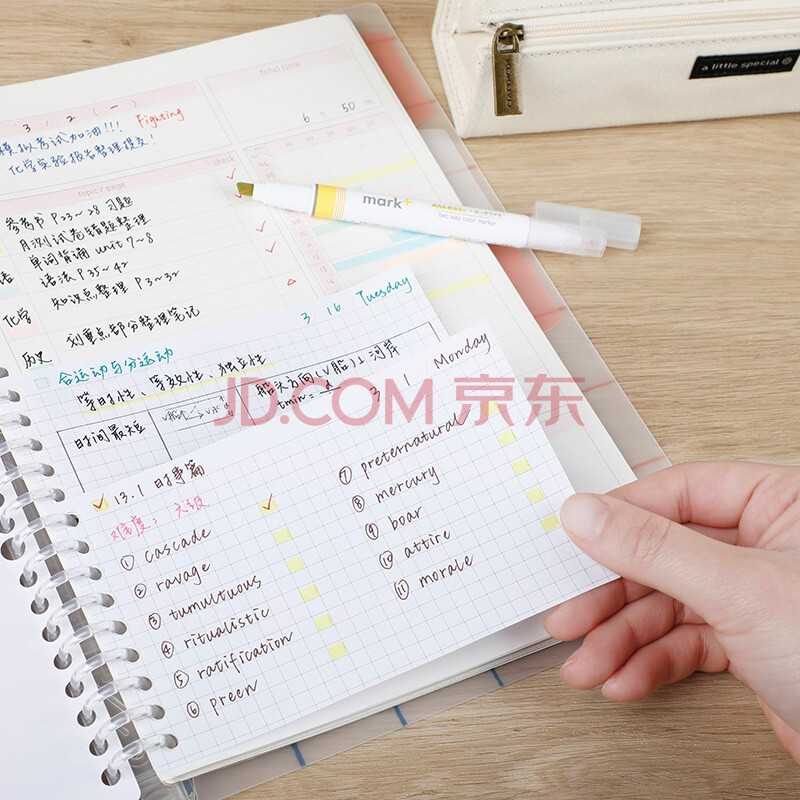 total time
3 / 2 (一)
6 h 50 m
模拟考试加油!!! Fighting
化学实验报告整理提交!
topic / page
check
参考书 P23~28 习题
月测试卷错题整理
单词背诵 unit 7~8
语 语法 P35~42
知识点整理 P3~32
化学
划重点部分整理笔记
历史
a little special
mark+
Two way color marker
3 16 Tuesday
合运动与分运动
等时性、等效性、独立性
时间最短
船头方向(V船)⊥河岸
tmin=
JD.COM 京东
3 1 Monday
13.1 时事篇
难度: 六级
① cascade
② ravage
③ tumultuous
④ ritualistic
⑤ ratification
⑥ preen
⑦ preternatural
⑧ mercury
⑨ boar
⑩ attire
⑪ morale